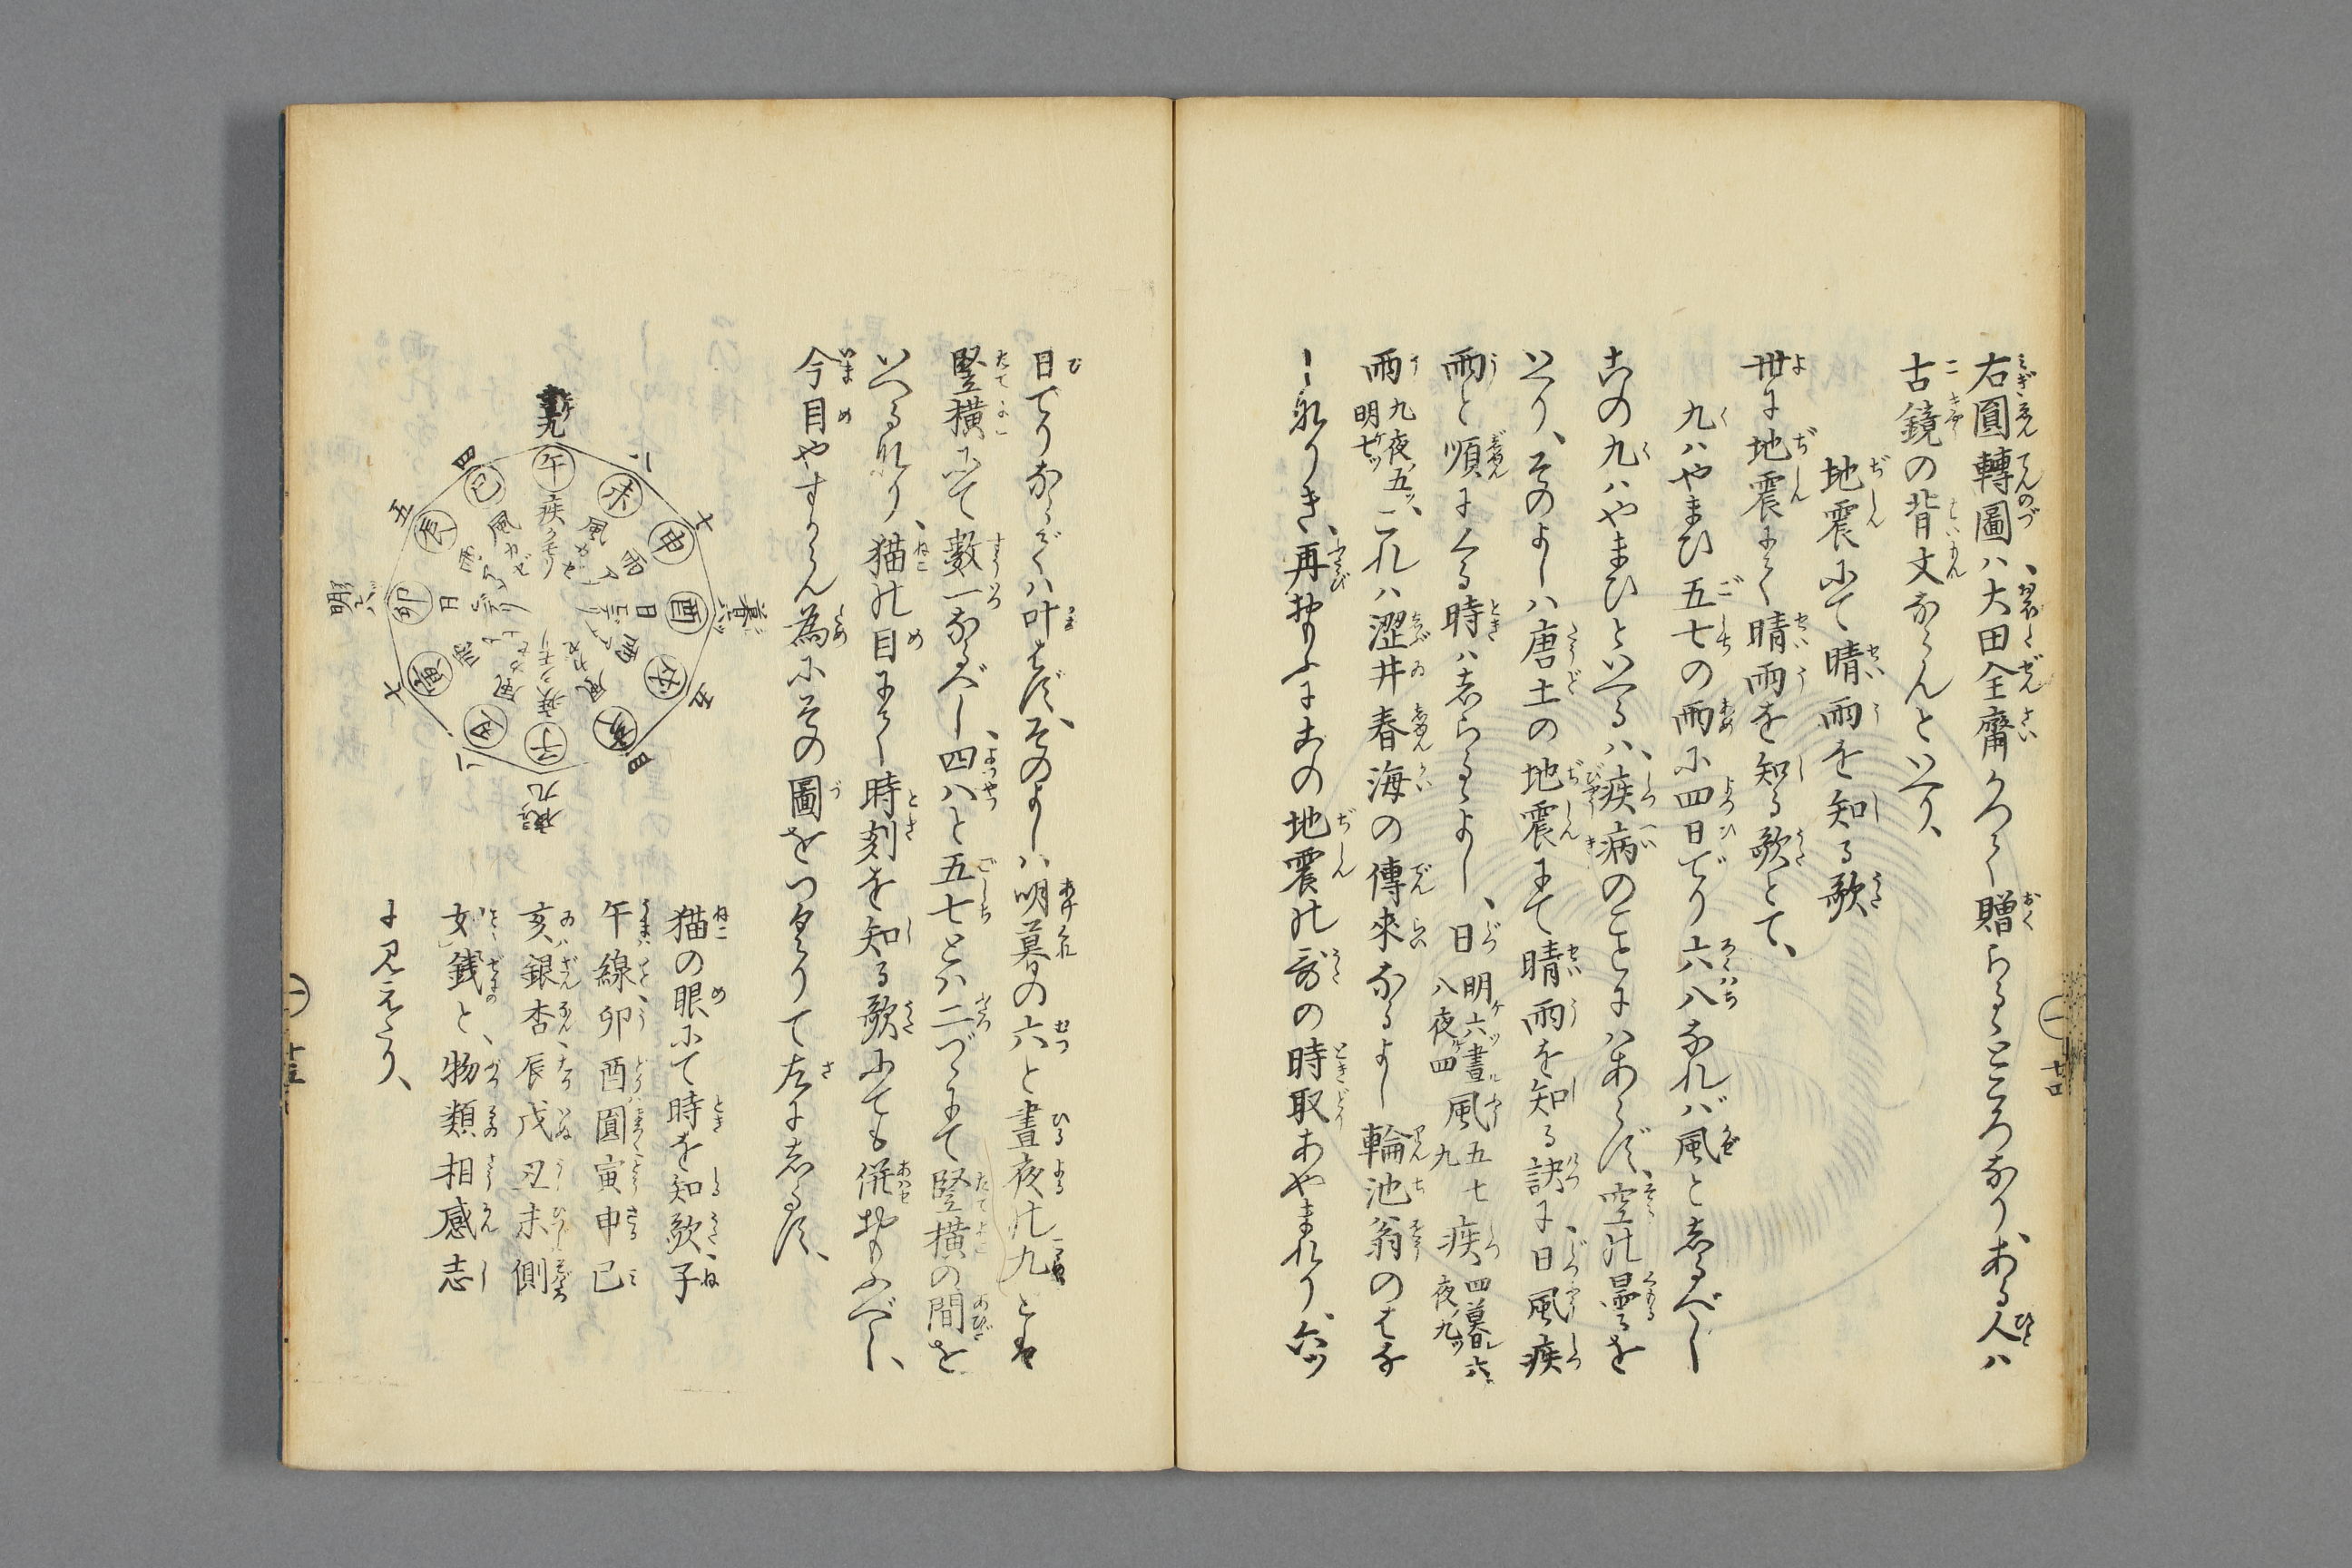 右圓轉圖ハ、大田全齋かつて贈らるゝところなり、ある人ハ
古鏡の背文ならんといへり、
地震にて晴雨を知る歌
世に地震にて晴雨を知る歌とて、
九ハやまひ五七の雨に四日でり六八ならバ風としるべし
この九ハやまひといへるハ、疾病のことにハあらず、空の曇るを
いへり、そのよしハ唐土の地震にて晴雨を知る訣に、日風疾
雨と順にくる時ハしらるゝよし、日明ケ六ツ晝八夜ル四風五七九疾四暮ル六ツ夜ノ九ツ
雨九夜ノ五ツ明ケ七ツ、これハ澀井春海の傳來なるよし輪池翁のはな
しなりき、再おもふにこの地震の哥の時取あやまれり、六ツ
日でりならでハ叶はず、そのよしハ明暮の六と晝夜の九とハ
竪横にて數一なるべし、四八と五七とハ二づゝにて竪横の間を
いへるなり、猫の目にて時刻を知る歌にても併おもふべし、
今目やすからん為にその圖をつくりて左にしるす、
晝九
午 疾クモリ
未 風カゼ 八
申 雨 七
酉 日 暮六ツ
戌 雨 五
亥 風 四
子 疾クモリ 夜九
丑 風カゼ 八
寅 雨 七
卯 日 明六ツ
辰 雨 五
巳 風カゼ 四
猫の眼にて時を知歌、子
午線卯酉圓寅申巳
亥銀杏辰戌丑未側
如銭と、物類相感志
に見えたり、
一 廿四
一 廿五